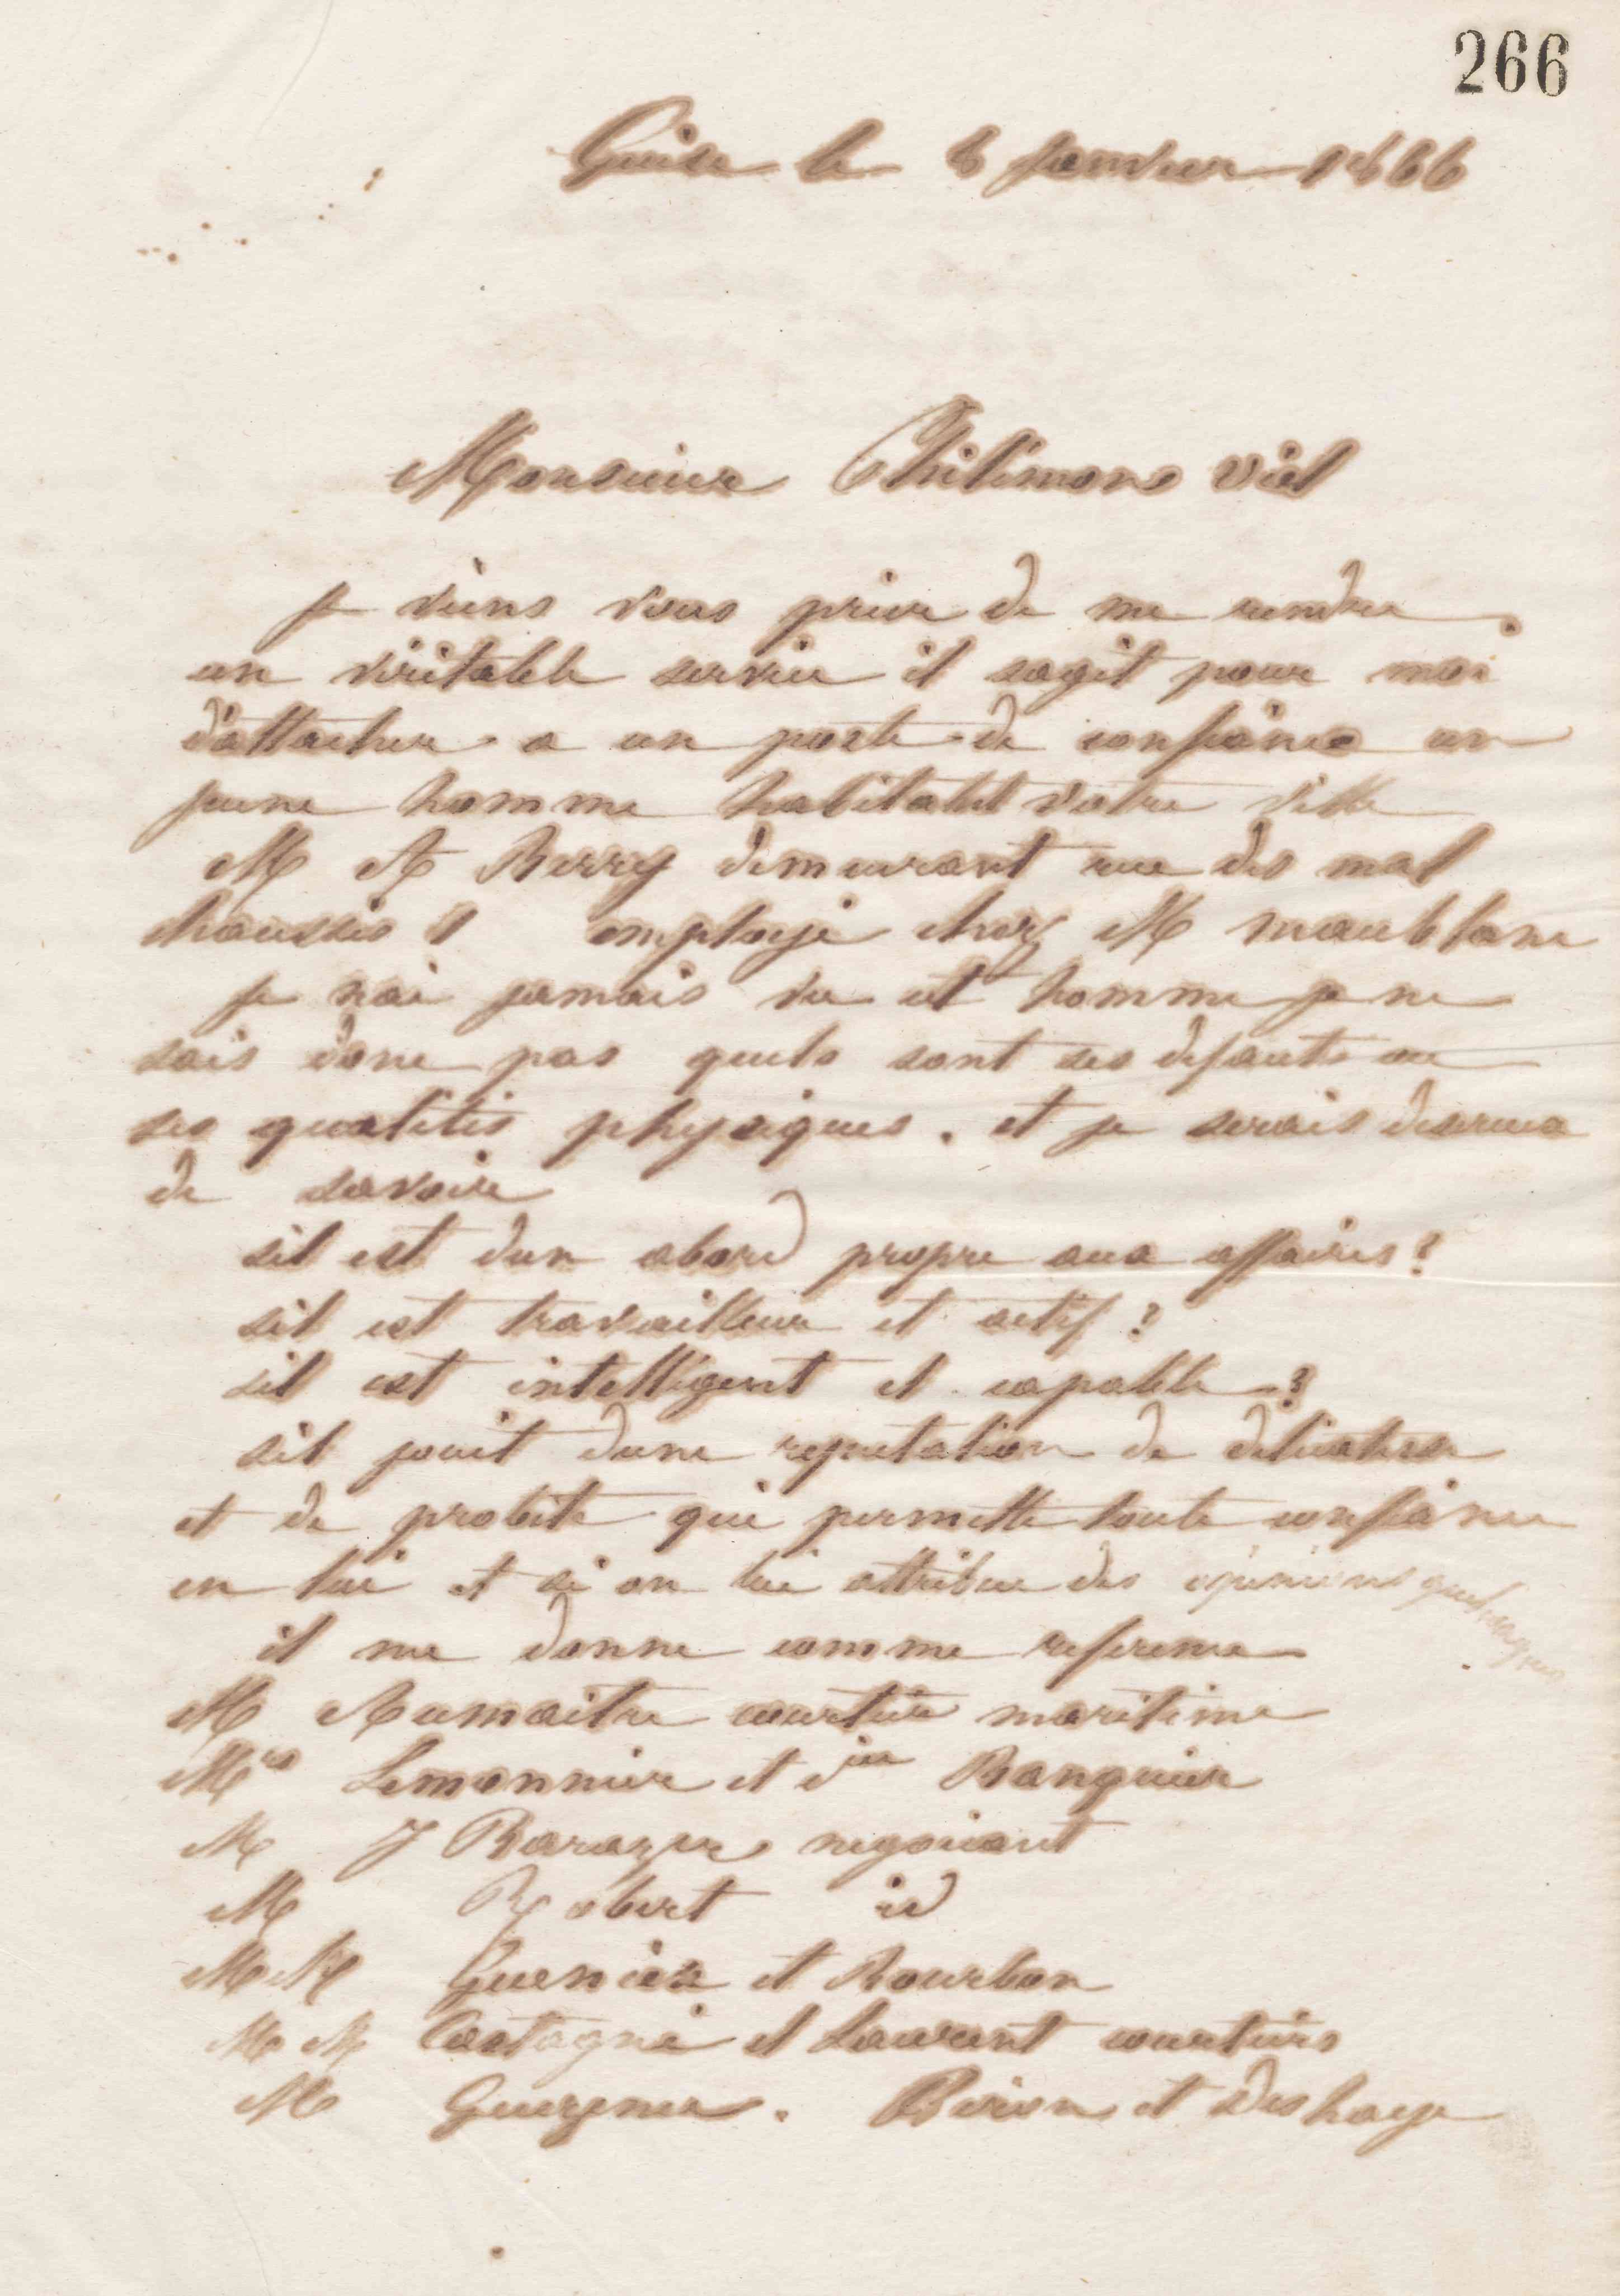 266
Guise le 8 Janvier 1866
Monsieur Philémond Viel
Je viens vous prier de me rendre
un véritable service il sagit pour moi
d'attacher a un poste de confiance un
jeune homme habitant votre ville
M A Berry demeurant rue des mal
chaussés 1 employé chez M maublanc
Je nai jamais vu cet homme je ne
sais donc pas quels sont ses defauts ou
ses qualités physiques. et je serais desireux
de savoir
sil est dun abord propre aux affaires?
sil est travailleur et actif?
sil est intelligent et capable?
sil jouit dune reputation de delicatesse
et de probite qui permette toute confiance
en lui et si on lui attribue des opinions quelconques
il me donne comme reference
M Aumaitre courtier maritime
Mrs Lemonnier et Banquier
M J negociant
M Robert id
MM et Bourbon
MM Castagné et Laurent courtiers
M et Deshaye